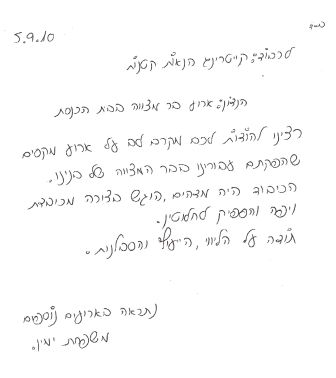 בס״ד
5.9.10
לכבוד: קייטרינג הנאות קטנות
הנדון: ארוע בר מצווה בבית הכנסת
רצינו להודות לכם מקרב לב על ארוע מקסים
שהפקתם עבורינו בבר המצווה של בנינו.
הכיבוד היה מדהים, הוגש בצורה מכובדת
ויפה והספיק לחלוטין.
תודה על הליווי, הייעוץ והסבלנות.
נתראה בארועים נוספים
משפחת ימין.